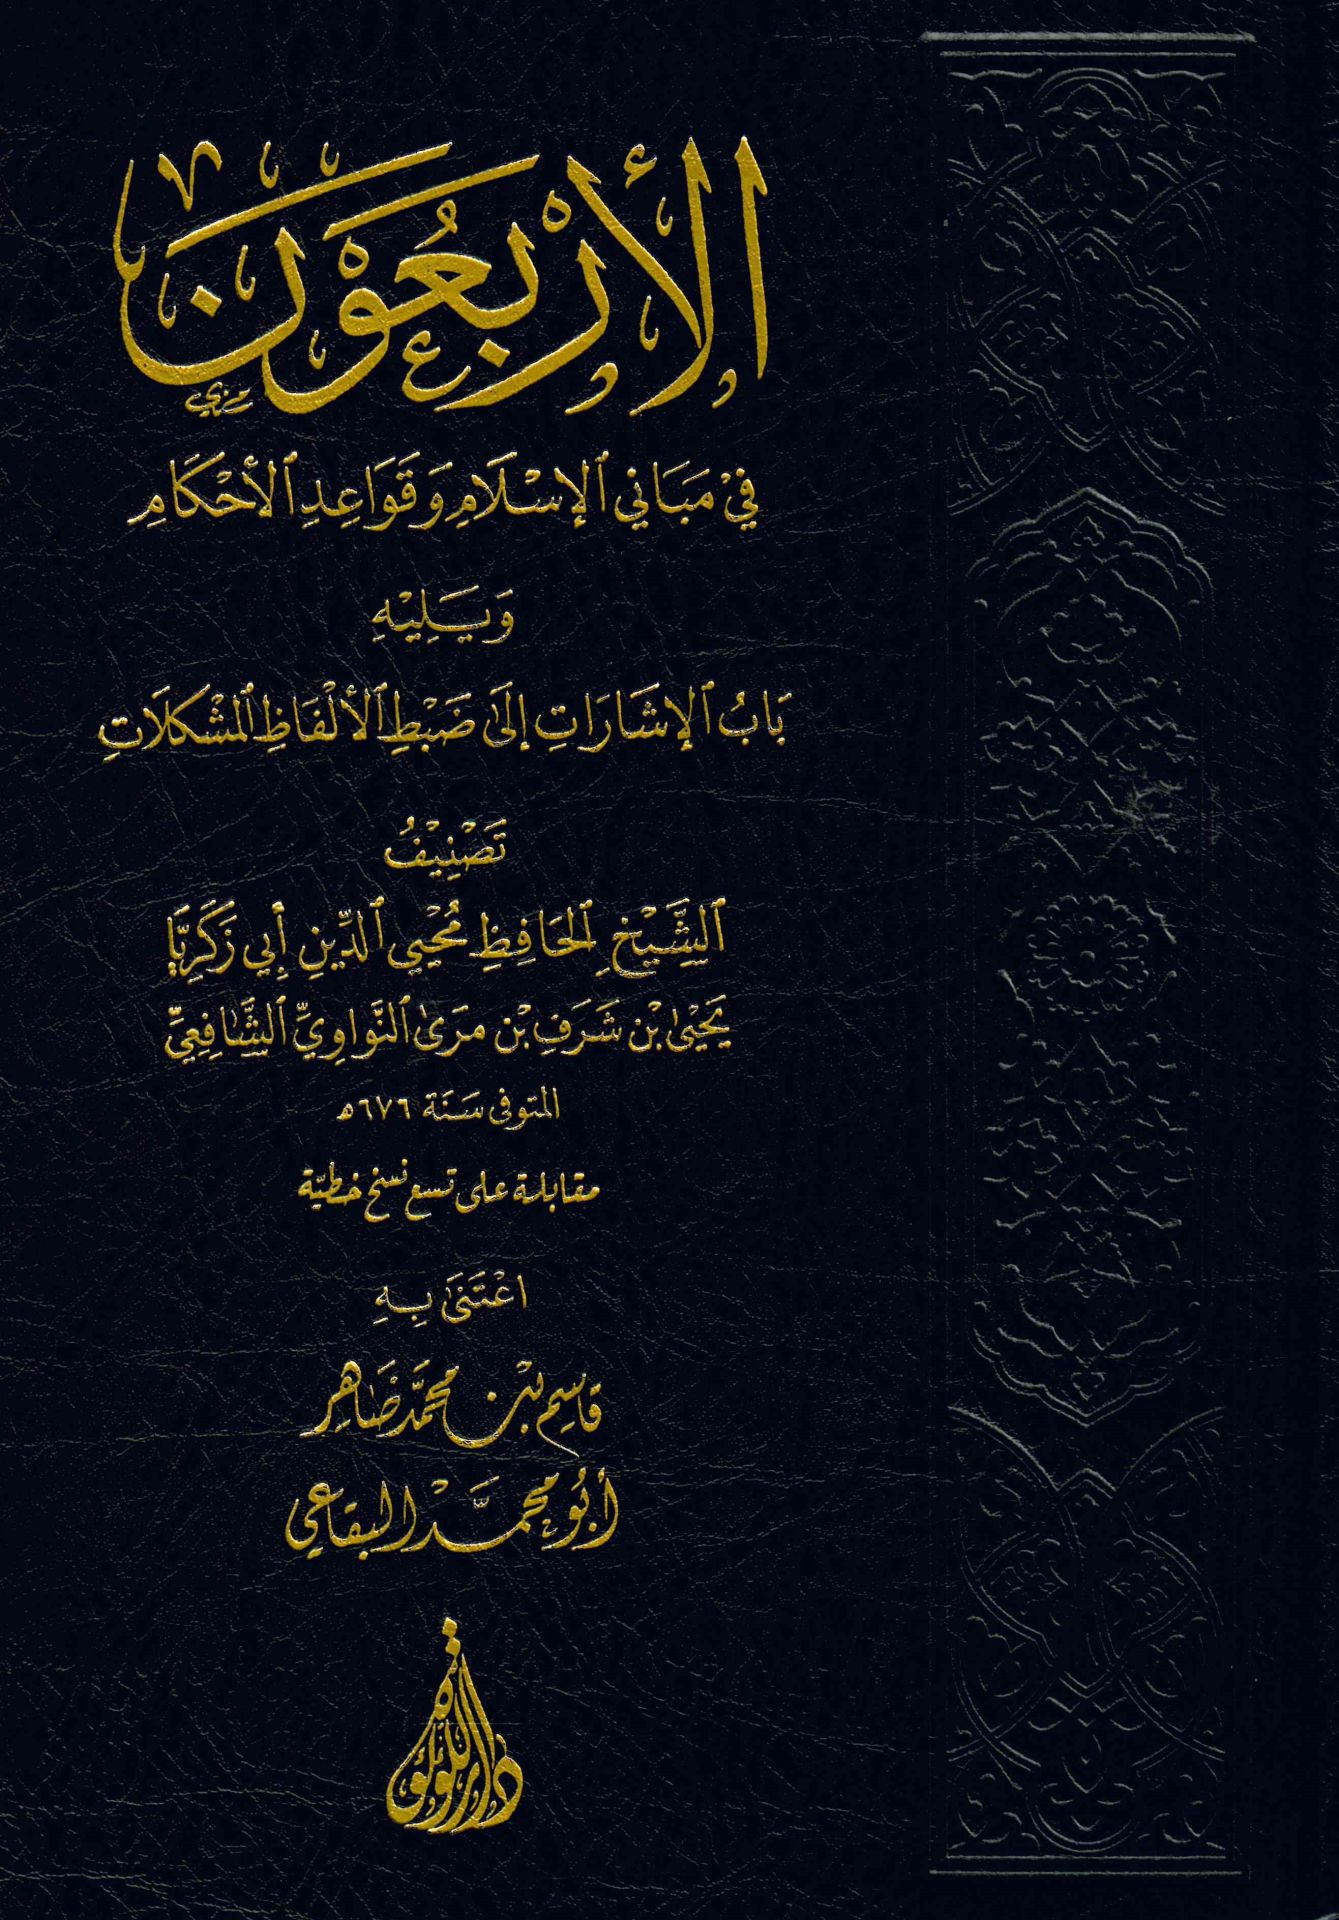 الأَرْبَعُوْنَ
فِيْ مَبَانِي ٱلإِسْلَامِ وَقَوَاعِدِ ٱلأَحْكَامِ
وَيَلِيْهِ
بَابُ ٱلإِشَارَاتِ إِلَىٰ ضَبْطِ ٱلأَلْفَاظِ ٱلمُشْكِلَاتِ
تَصْنِيْفُ
ٱلشَّيْخِ ٱلحَافِظِ مُحْيِي ٱلدِّينِ أَبِي زَكَرِيَّا
يَحْيَىٰ بْنِ شَرَفِ بْنِ مرَىٰ ٱلنَّوَاوِيِّ ٱلشَّافِعِيِّ
المتوفى سَنَة ٦٧٦ھ
مقابلة على تسع نسخ خطيّة
اعْتَنَىٰ بِهِ
قَاسِم بْن مُحَمَّد ضَاهِر
أَبُو مُحَمَّد البقَاعي
دار اللؤلؤة